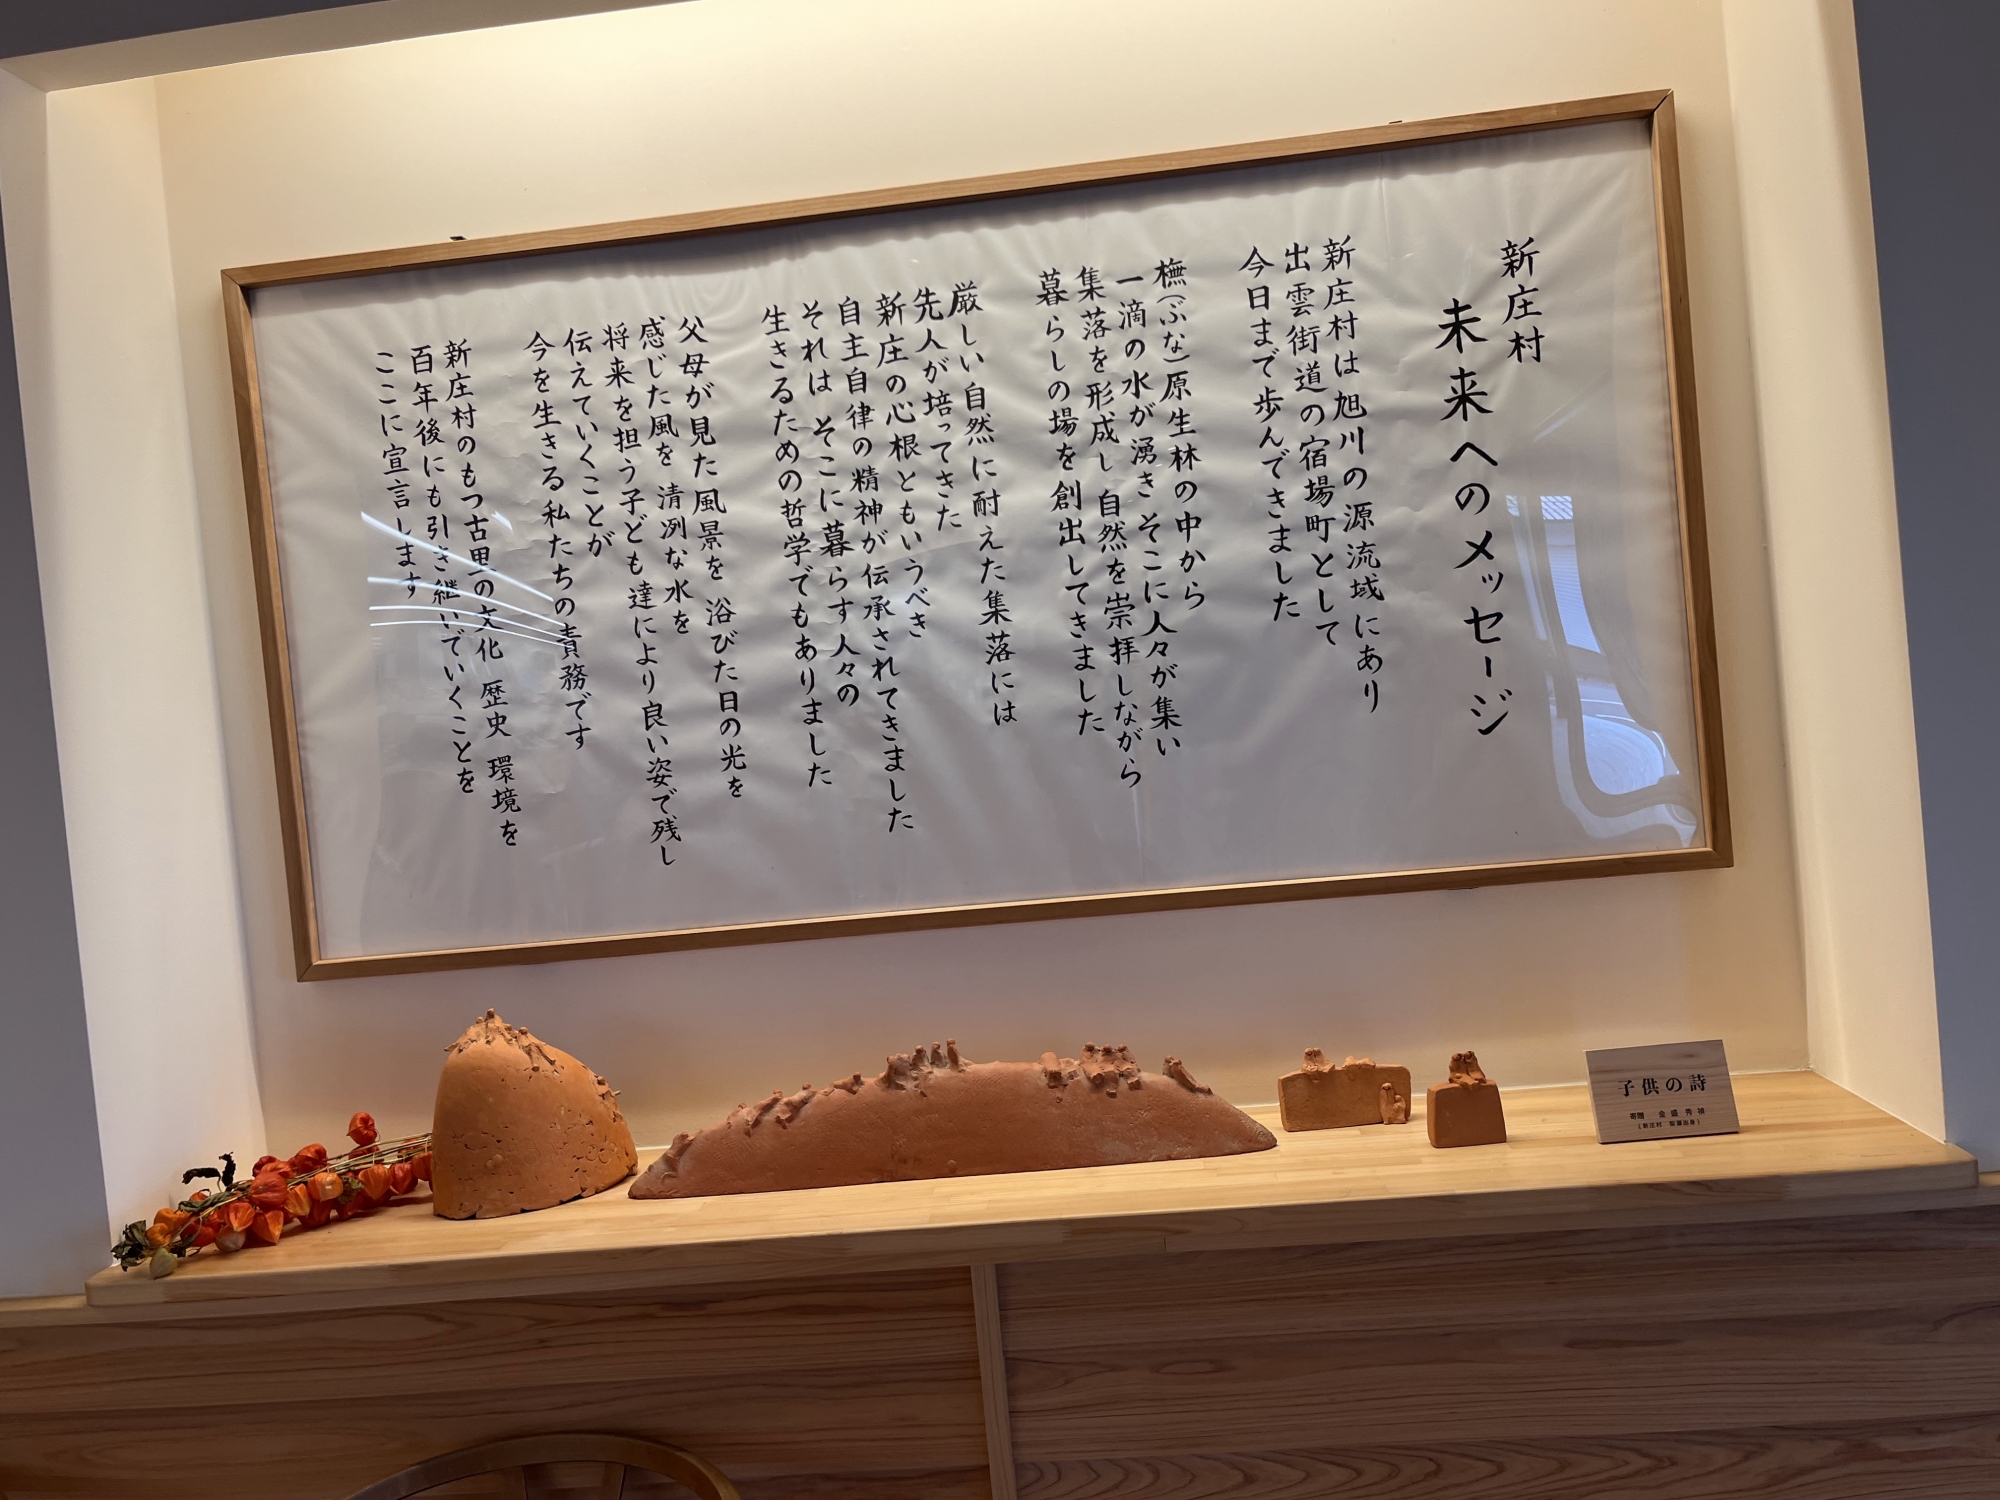 新庄村
未来へのメッセージ
新庄村は旭川の源流域にあり
出雲街道の宿場町として
今日まで歩んできました
橅(ぶな)原生林の中から
一滴の水が湧き そこに人々が集い
集落を形成し 自然を崇拝しながら
暮らしの場を創出してきました
厳しい自然に耐えた集落には
先人が培ってきた
新庄の心根ともいうべき
自主自律の精神が伝承されてきました
それは そこに暮らす人々の
生きるための哲学でもありました
父母が見た風景を 浴びた日の光を
感じた風を 清冽な水を
将来を担う子ども達により良い姿で残し
伝えていくことが
今を生きる私たちの責務です
新庄村のもつ古里の文化 歴史 環境を
百年後にも引き継いでいくことを
ここに宣言します
子供の詩
寄贈 金盛秀禎
(新庄村 梨瀬出身)